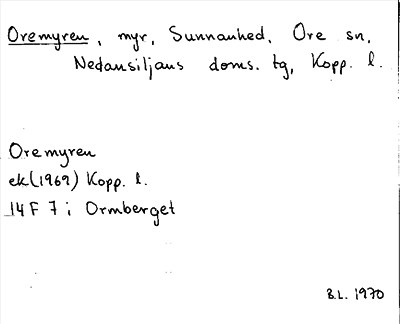 Oremyren, myr, Sunnanhed, Ore sn,
Nedansiljans doms. tg, Kopp. l.
Oremyren
ek(1969) Kopp. l.
14F 7 i Ormberget
B.L. 1970